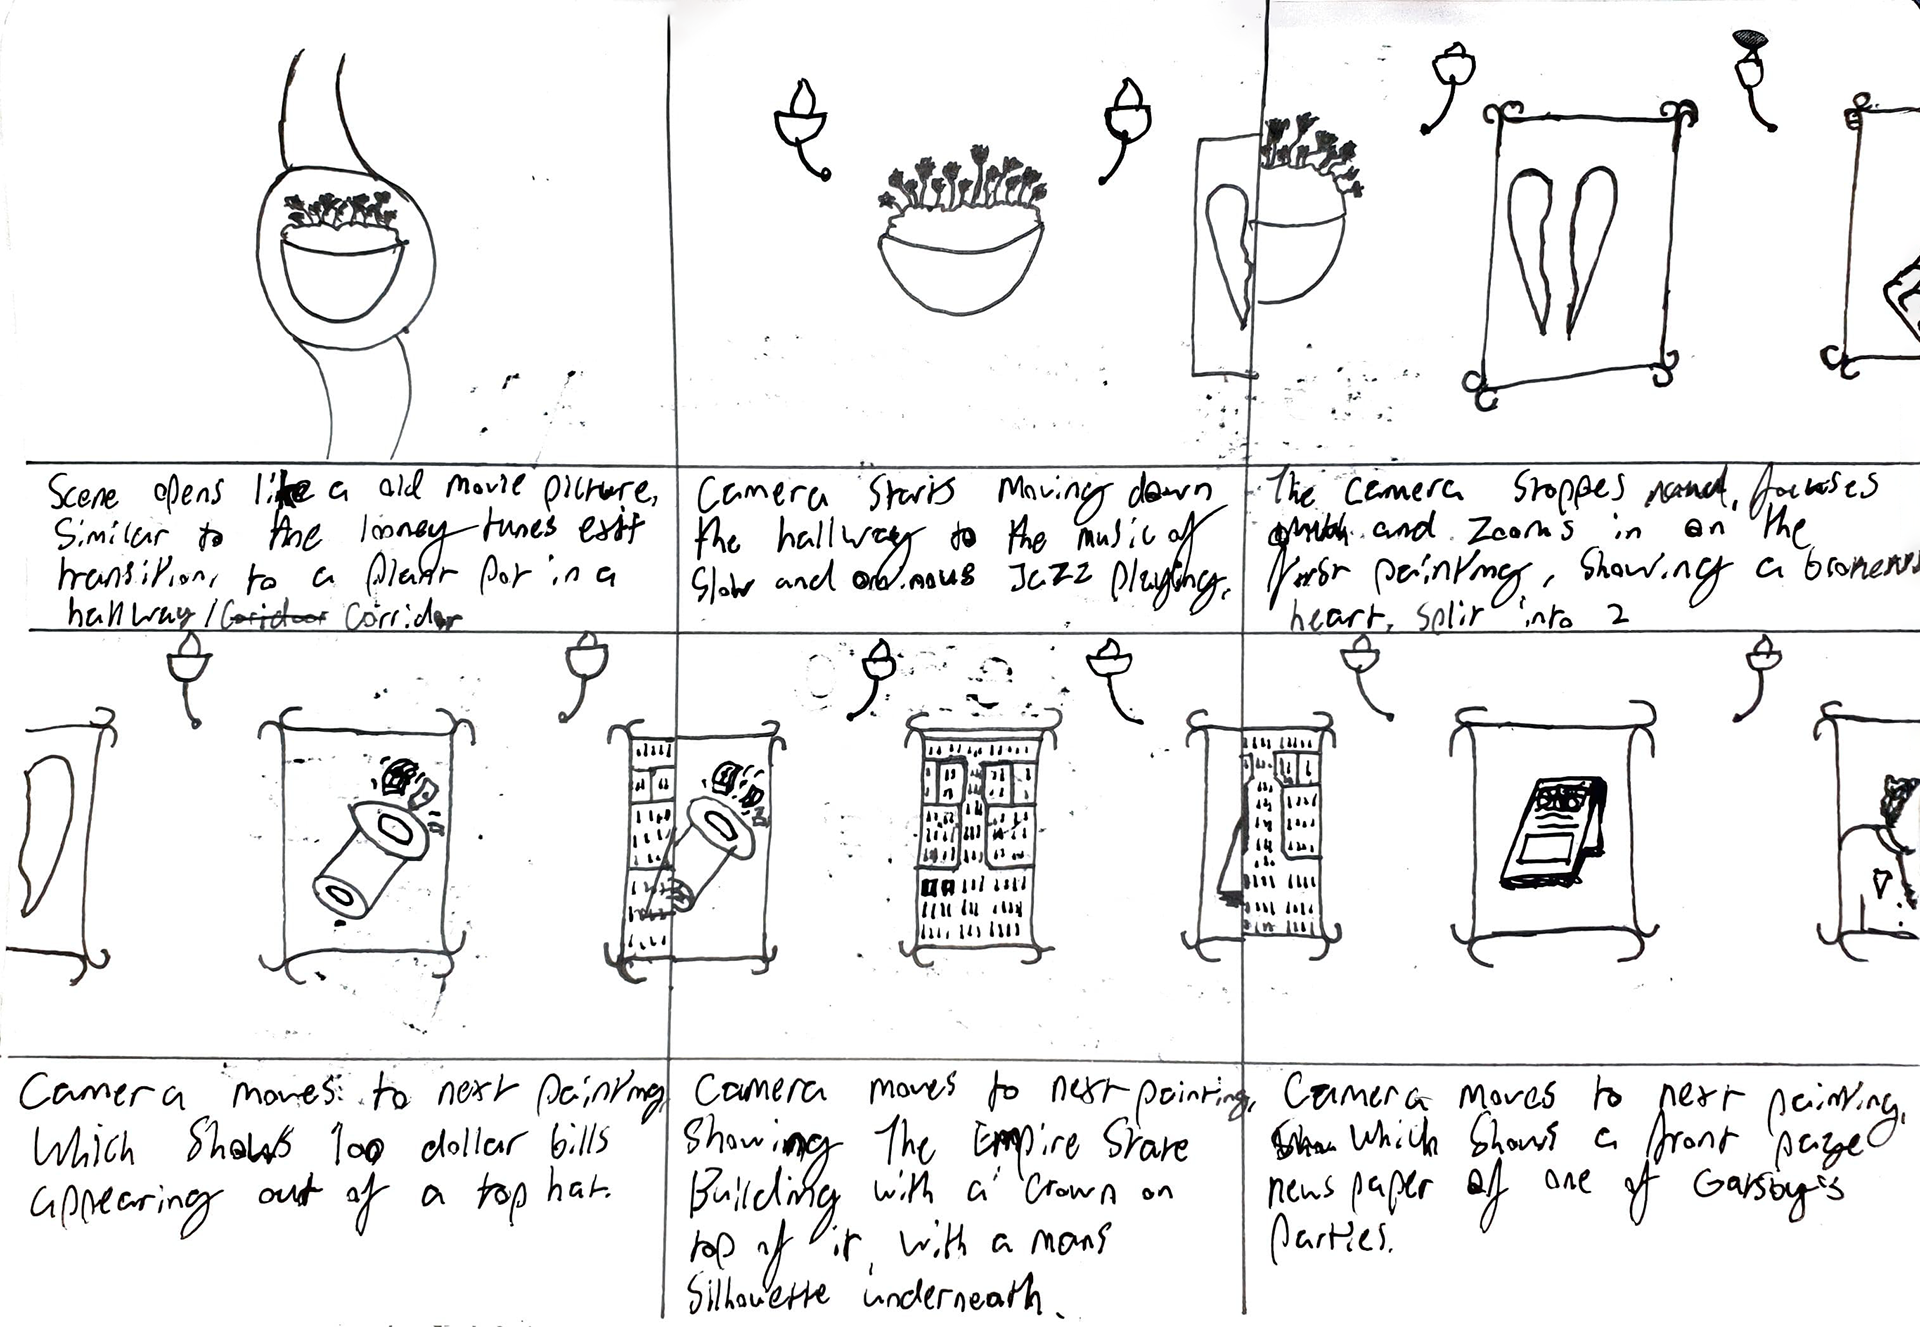 Scene opens like a old movie picture,
Similar to the looney tunes exit
transition, to a plant pot in a
hallway / Corridor
Camera starts Moving down
the hallway to the music of
slow and ominous Jazz playing.
The camera stoppes, focuses
and zooms in on the
first painting, showing a broken
heart, split into 2
Camera moves to next painting
which shows 100 dollar bills
appearing out of a top hat.
Camera moves to next painting,
showing The Empire State
Building with a crown on
top of it, with a mans
silhouette underneath.
Camera moves to next painting,
which shows a front page
news paper of one of Gatsby's
parties.